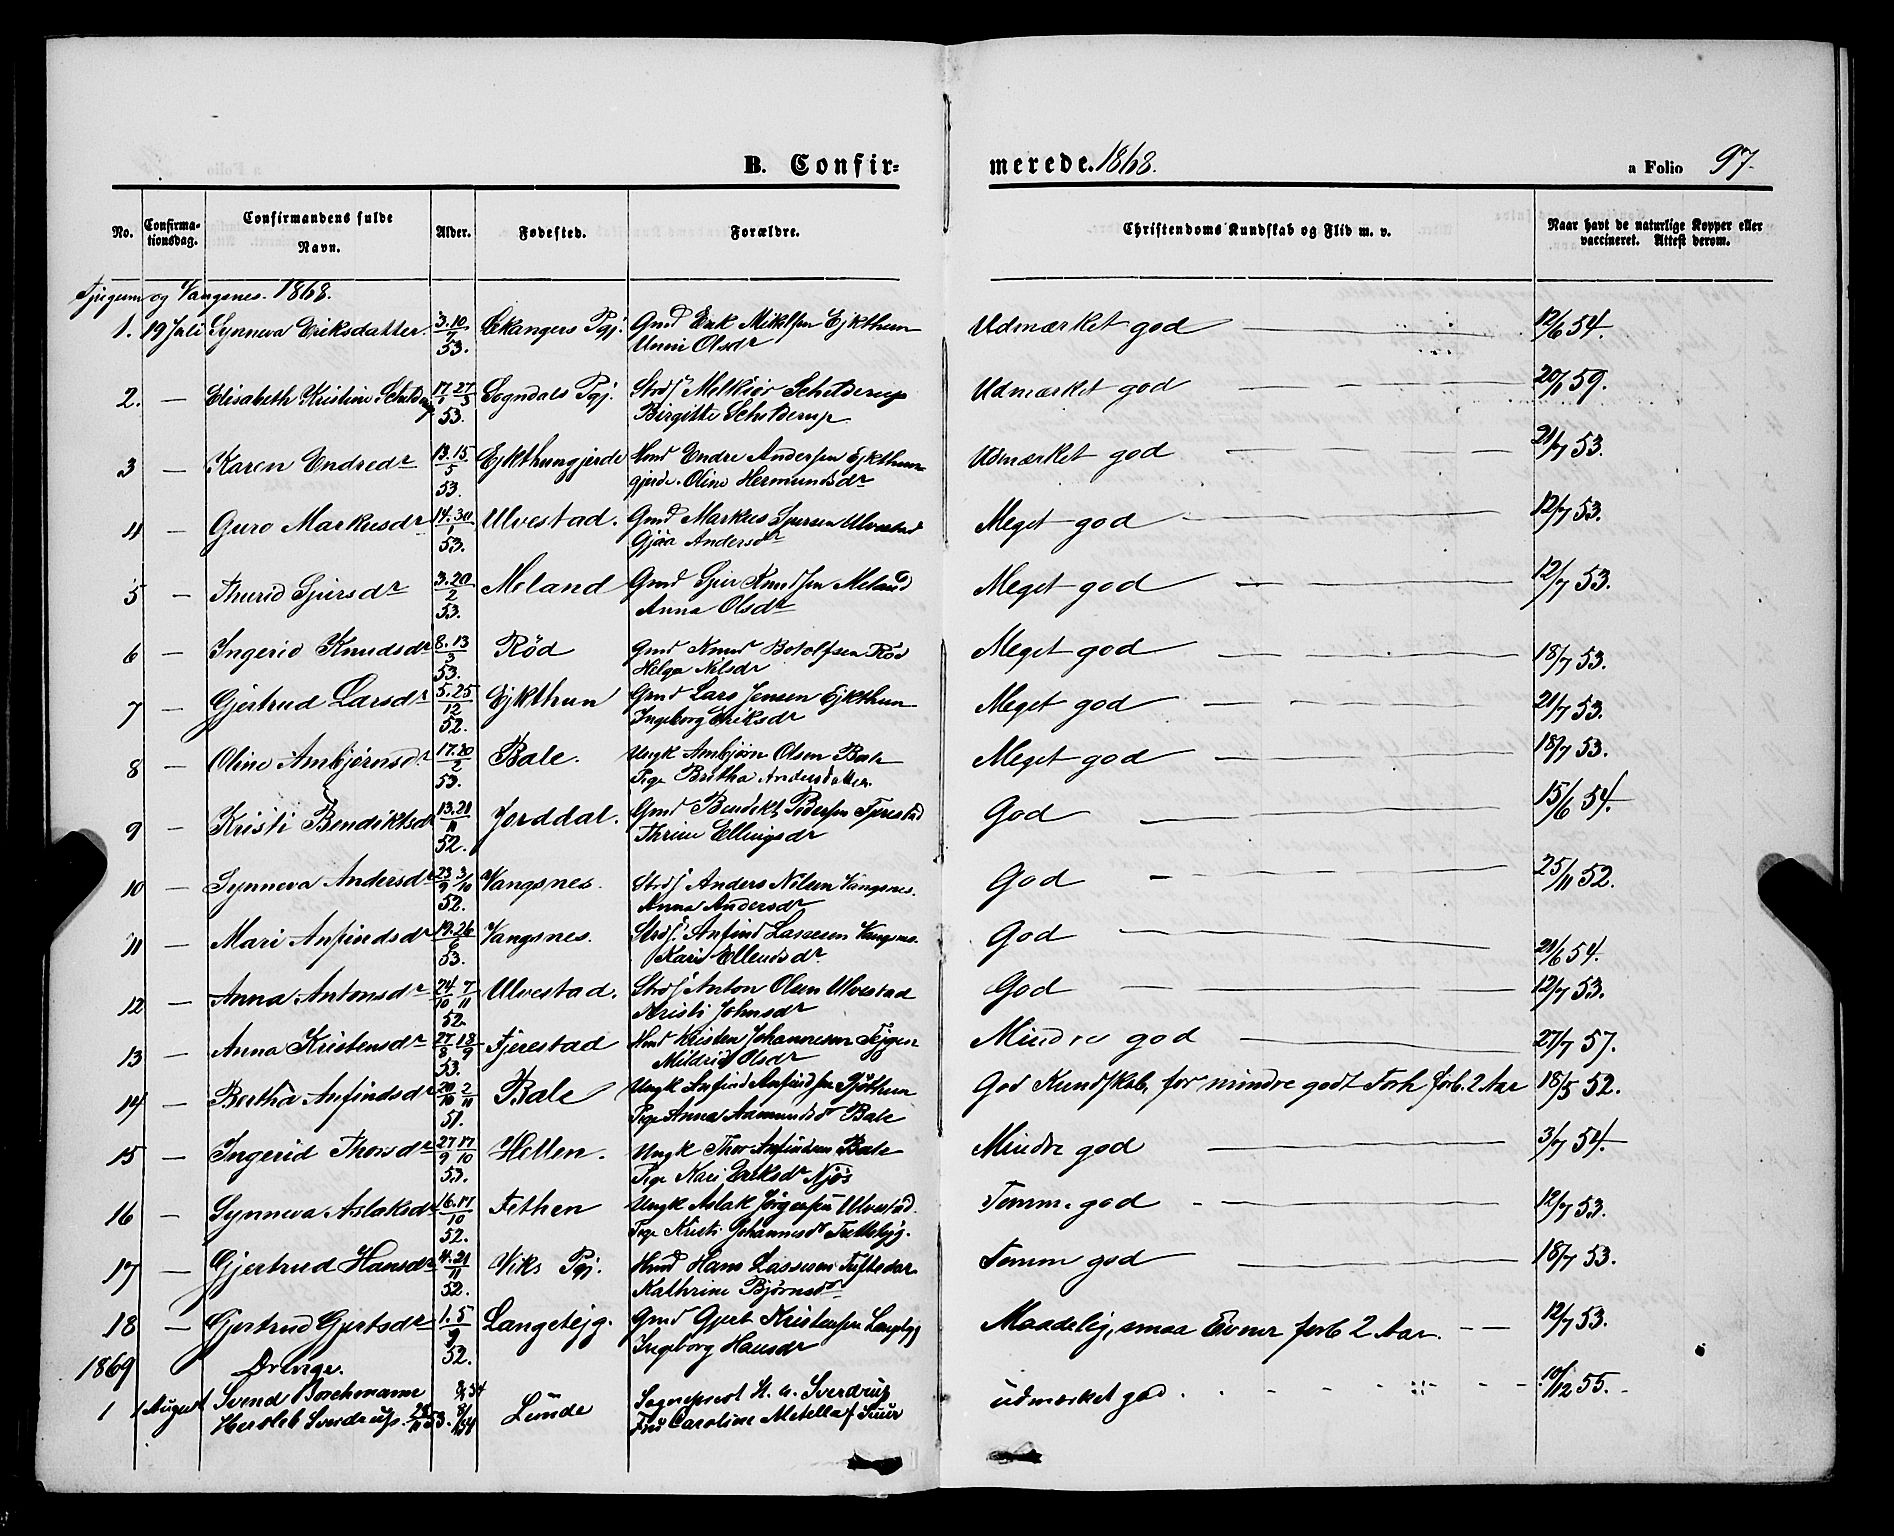 B. Confirmerede. 1868. a Folio 97.
No. Confirmationsdag. Confirmandens fulde Navn. Alder. Fødested. Forældre. Christendoms Kundskab og Flid m. v. Naar havt de naturlige Kopper eller vaccineret. Attest derom.
Tjugum og Vangsnes. 1868.
1. 19 Juli Synneva Eriksdatter. 3.10/7 53. Lekangers Pgj. Gmd Erik Mikelsen Ejkthun Udmærket god 12/6 54.
Unni Olsdr
2. — Elisabeth Kristine Schelderup 17/1 27/3 53. Sogndals Pgj. Strds Melkior Schelderup Udmærket god 20/1 59.
Birgitte Schelderup
3 — Karen Endredr 13.15/5 53. Ejkthungjerde Hmd Endre Andersen Ejkthun Udmærket god 21/7 53.
gjerde. Oline Hermundsdr
4 — Guro Markusdr 14.30/1 53. Ulvestad. Gmd Markus Sjursen Ulvestad Meget god 12/7 53.
Gjøa Andersdr
5 — Thurid Sjursdr 3.20/2 53. Meland Gmd Sjur Knudsen Meland Meget god 12/7 53.
Anna Olsdr
6 — Ingerid Knudsdr 8.13/3 53. Rød Gmd Knud Botolfsen Rød Meget god 18/7 53.
Helga Nilsdr
7 — Gjertrud Larsdr 5.25/12 52. Ejkthun Gmd Lars Jensen Ejkthun Meget god 21/7 53.
Ingeborg Eriksdr
8 — Oline Ambjørnsdr 17.20/2 53. Bale. Ungk Ambjørn Olsen Bale Meget god 18/7 53.
Pige Britha Andersdatter
9 — Kristi Bendiktsdr 13.21/11 52. Jorddal. Gmd Bendikt Pedersen Fjerestad God 15/6 54.
Thrine Ellingsdr
10 — Synneva Andersdr 23/9 3/10 52. Vangsnes. Strds Anders Nilsen Vangsnes. God 25/11 52.
Anna Andersdr
11 — Mari Anfindsdr 19.26/6 53. Vangsnes. Strds. Anfind Lassesen Vangsnes. God 21/6 54.
Kari Ellendsdr.
12 — Anna Antonsdr 24/10 7/11 52. Ulvestad. Strds Anton Olsen Ulvestad God 12/7 53.
Kristi Johnsdr
13 — Anna Kristensdr 27/8 18/9 53. Fjerestad Hmd Kristen Johannesen Tejgen Mindre god 27/7 57.
Mildrid Olsdr
14 — Bertha Anfindsdr 20/10 2/11 51. Bale Ungk Anfind Anfindsen God Kundskab, for mindre godt Forh. forb. 2 Aar 18/5 52.
Pige Anna Aamundsdr Bale
15 — Ingerid Thorsdr 27/9 17/10 53. Hellen. Ungk Thor Anfindsen Bale Mindre god 3/7 54.
Pige Kari Eriksdr Njøs
16 — Synneva Aslaksdr 16.17/10 52. Fethen Ungk Aslak Jørgensen Ulvestad. Temm. god 12/7 53.
Pige Kristi Johannesdr
17 — Gjertrud Hansdr 4.21/11 52. Viks Pgj. Hmd Hans Lassesen Temm god 18/7 53.
Kathrine Bjørnsdr
18 — Gjertrud Gjertsdr 1.5/9 52. Langetejg. Gmd Gjert Kristensen Langtejg Maadelig, smaa Evner forb 2 Aar. 12/7 53.
Ingeborg Hansdr
1869 Drenge.
1 1 August Svend Borchmanne Hersleb Sverdrup. Lunde Sognepræst H. U. Sverdrup udmærket god. 10/12 55.
Fru Caroline Metella f. Suur